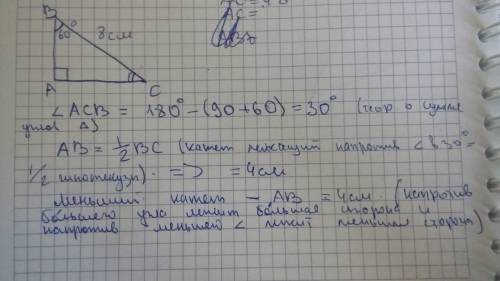 B
60°
8см
A
C
∠ACB = 180° - (90 + 60) = 30° (теор о сумме
углов Δ)
AB = 1/2 BC (катет лежащий напротив ∠ в 30° =
1/2 гипотенузы) · => = 4см
меньший катет — AB = 4см (напротив
большего угла лежит большая сторона и
напротив меньшего < лежит меньшая сторона)